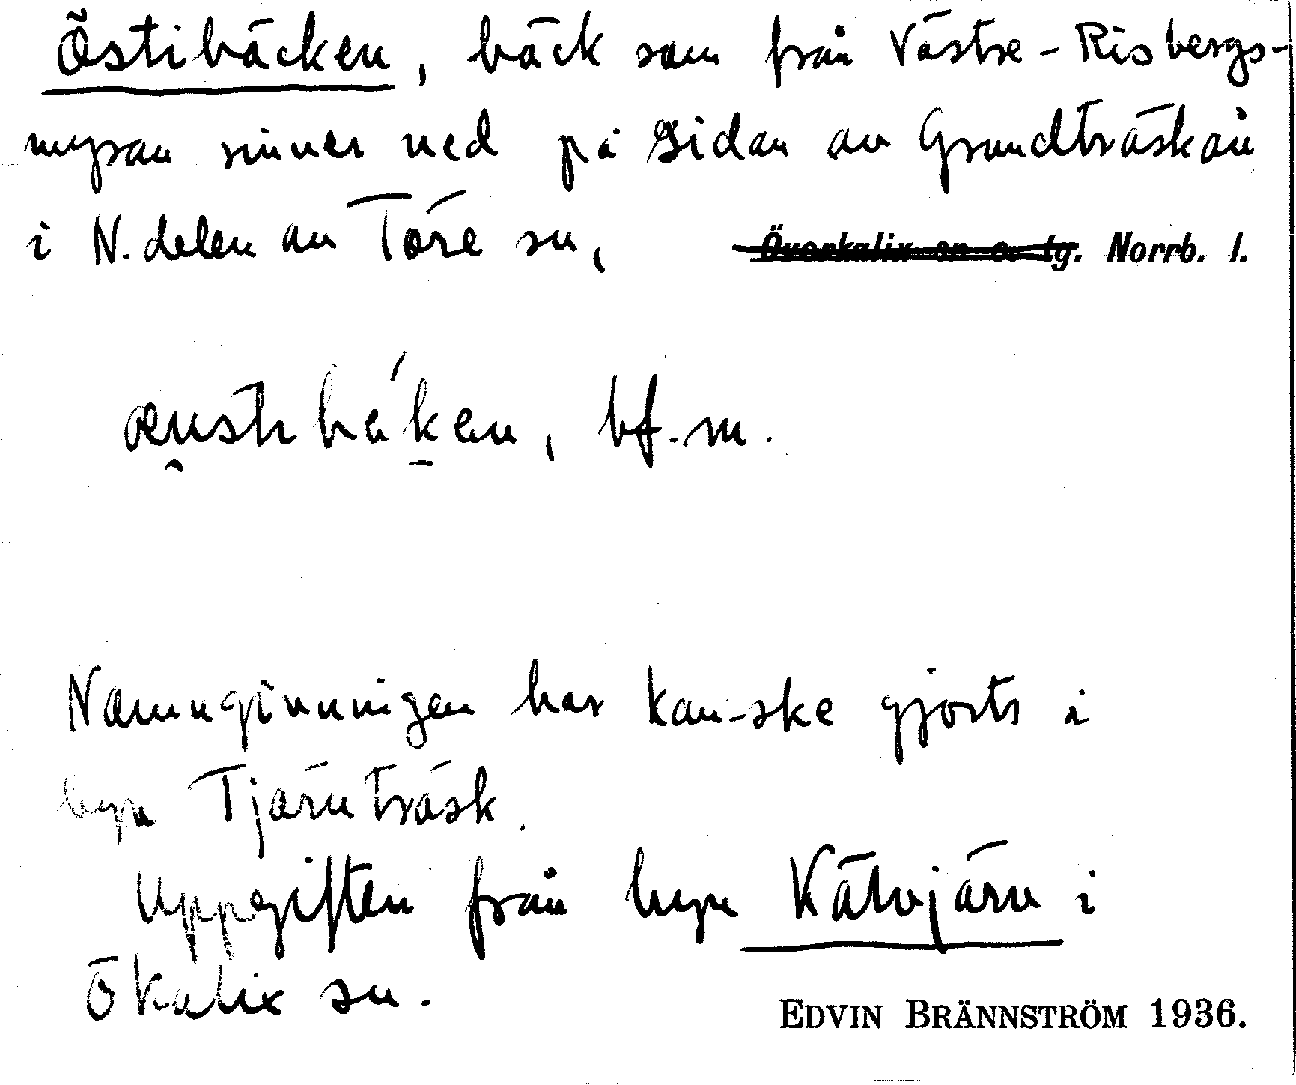 Östibäcken, bäck som från Västre-Risbergs-
myran rinner ned på sidan av Grundträskån
i N. delen av Töre sn, Överkalix sn o. tg. Norrb. l.
bf. m.
Namngivningen har kan-ske gjorts i
byn Tjärnträsk.
Uppgiften från byn Kälvjärv i
Ökalix sn.
EDVIN BRÄNNSTRÖM 1936.